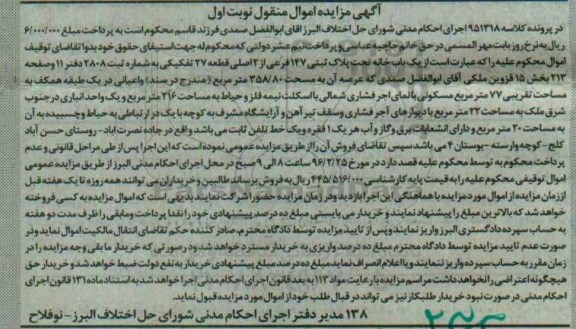 آگهی مزایده اموال منقول نوبت اول
در پرونده کلاسه ۹۵۱۳۱۸ اجرای احکام مدنی شورای حل اختلاف البرز آقای ابوالفضل صمدی فرزند قاسم محکوم است به پرداخت مبلغ ۶/۰۰۰/۰۰۰
ریال به نرخ روز بابت مهر المسمی در حق خانم حاجیه عباسی و پرداخت نیم عشر دولتی که محکوم له جهت استیفای حقوق خود بدوا تقاضای توقیف
اموال محکوم علیه را که عبارت است از یک باب خانه تحت پلاک ثبتی ۱۴۷ فرعی از ۲ اصلی قطعه ۲۷ تفکیکی به شماره ثبت ۲۸۰۸ دفتر ۱۱ و صفحه
۲۱۳ بخش ۱۵ قزوین ملکی آقای ابوالفضل صمدی که عرصه آن به مساحت ۳۵۸/۸۰ متر مربع (مندرج در سند) و اعیانی در یک طبقه همکف به
مساحت تقریبی ۷۷ متر مربع مسکونی با نمای آجر فشاری شمالی با اسکلت نیمه فلز و حیاط به مساحت ۲۱۶ متر مربع و یک واحد انباری در جنوب
شرق ملک به مساحت ۲۲ متر مربع با دیوارهای آجر فشاری و سقف تیر آهن و آرایشگاه مشرف به کوچه با یک در ارتباطی به حیاط و چسبیده به آن
به مساحت ۲۰ متر مربع و دارای انشعابات برق و گاز و آب هر یک ۱ فقره و یک خط تلفن ثابت می باشد واقع در جاده نصرت آباد - روستای حسن آباد
کلج - کوچه وارسته - بوستان ۴ می باشد سپس تقاضای فروش آن را از طریق مزایده عمومی نموده است که این اجرا پس از طی مراحل قانونی و عدم
پرداخت محکوم به توسط محکوم علیه قصد دارد در مورخ ۹۶/۲/۲۵ ساعت ۸ الی ۹ صبح در محل اجرای احکام مدنی البرز از طریق مزایده عمومی
اموال توقیفی محکوم علیه را به قیمت پایه کارشناسی ۴۴۵/۵۱۶/۰۰۰ ریال به فروش برساند طالبین و خریداران می توانند همه روزه تا یک هفته قبل
از زمان مزایده از اموال مورد مزایده با هماهنگی این اجرا بازدید و در زمان مزایده حضور و شرکت نمایند بدیهی است که اموال مزایده به کسی فروخته
خواهد شد که بالاترین مبلغ را پیشنهاد نمایند و خریدار می بایستی مبلغ ده درصد پیشنهادی خود را نقدا پرداخت و مابقی را ظرف مدت دو هفته
به حساب سپرده دادگستری البرز واریز نماید و پس از تایید مزایده توسط دادگاه محترم صادر کننده حکم تقاضای انتقال مالکیت اموال نماید و در
صورت عدم تایید مزایده توسط دادگاه محترم مبلغ ده درصد واریزی به خریدار مسترد خواهد شد و در صورتی که خریدار مابقی وجه مزایده را در
زمان مقرر به حساب سپرده واریز ننمایند و یا اعلام انصراف نماید مبلغ ده درصد مبلغ پیشنهادی خریدار به نفع دولت ضبط خواهد شد و خریدار حق
هیچگونه اعتراضی را نخواهد داشت مراسم مزایده با رعایت مواد ۱۱۳ به بعد قانون اجرای احکام مدنی اجرا خواهد شد به استناد ماده ۱۳۱ قانون اجرای
احکام مدنی در صورت نبود خریدار طلبکار نیز می تواند در قبال طلب خود از اموال مورد مزایده قبول نماید.
۱۳۸ مدیر دفتر اجرای احکام مدنی شورای حل اختلاف البرز - نوفلاح